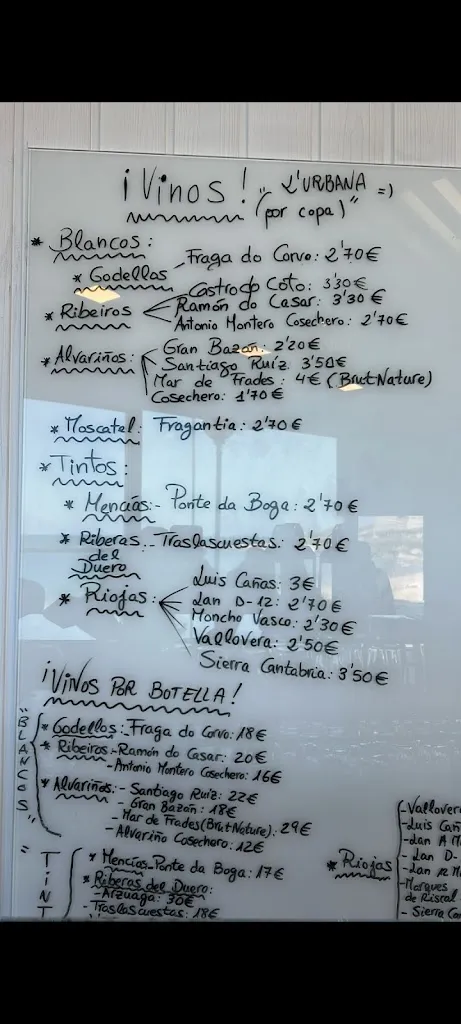 ¡Vinos! "L'URBANA =)
(por copa)"
* Blancos:
* Godellos Fraga do Corvo: 2'70€
* Ribeiros Castro do Coto: 3'30€
Ramón do Casar: 3'30€
Antonio Montero Cosechero: 2'70€
* Alvariños: Gran Bazán: 2'20€
Santiago Ruíz: 3'50€
Mar de Frades: 4€ (Brut Nature)
Cosechero: 1'70€
* Moscatel: Fragantia: 2'70€
* Tintos:
* Mencías:- Ponte da Boga: 2'70€
* Riberas del Duero -- Traslascuestas: 2'70€
* Riojas: Luis Cañas: 3€
Lan D-12: 2'70€
Moncho Vasco: 2'30€
Vallovera: 2'50€
Sierra Cantabria: 3'50€
¡VINOS POR BOTELLA!
"BLANCOS"
* Godellos: Fraga do Corvo: 18€
* Ribeiros - Ramón do Casar: 20€
- Antonio Montero Cosechero: 16€
* Alvariños: - Santiago Ruiz: 22€
- Gran Bazán: 18€
- Mar de Frades (Brut Nature): 29€
- Alvariño Cosechero: 12€
"TINT
* Mencías - Ponte da Boga: 17€
* Riberas del Duero:
- Arzuaga: 30€
- Traslascuestas: 18€
* Riojas
- Vallover
- Luis Cañ
- Lan A M
- Lan D-
- Lan
- Marques
de Riscal
- Sierra Ca